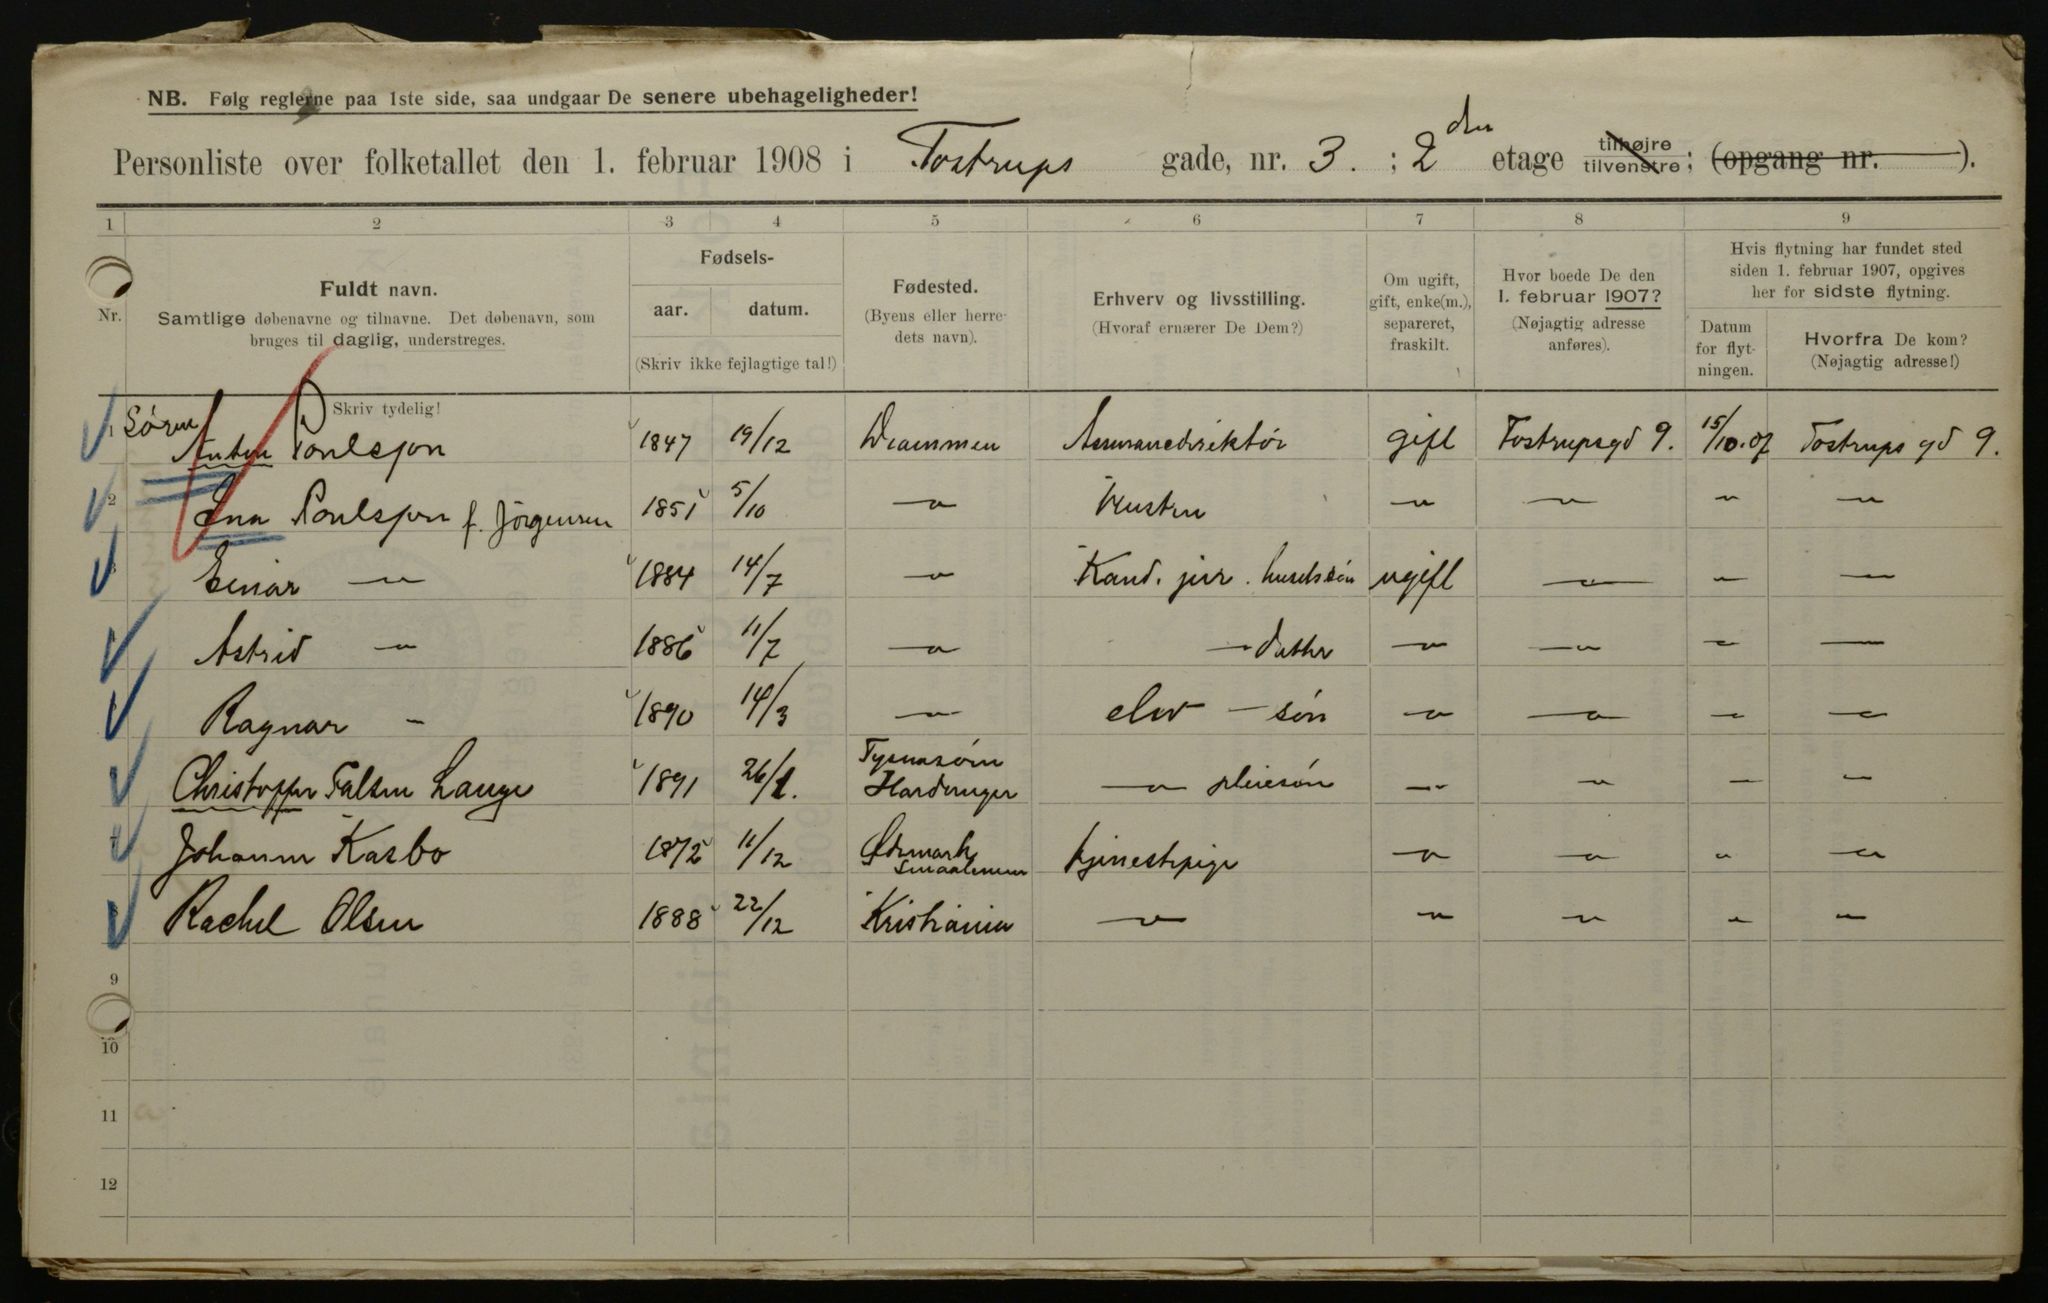 NB. Følg reglerne paa 1ste side, saa undgaar De senere ubehageligheder!
Personliste over folketallet den 1. februar 1908 i Tostrups gade, nr. 3. ; 2den etage tilhøjre tilvenstre; (opgang nr. ).
1 2 3 4 5 6 7 8 9
Nr.
Fuldt navn.
Samtlige døbenavne og tilnavne. Det døbenavn, som
bruges til daglig, understreges.
Skriv tydelig!
Fødsels-
aar. datum.
(Skriv ikke fejlagtige tal!)
Fødested.
(Byens eller herre-
dets navn).
Erhverv og livsstilling.
(Hvoraf ernærer De Dem?)
Om ugift,
gift, enke(m.),
separeret,
fraskilt.
Hvor boede De den
1. februar 1907?
(Nøjagtig adresse
anføres).
Hvis flytning har fundet sted
siden 1. februar 1907, opgives
her for sidste flytning.
Datum
for flyt-
ningen.
Hvorfra De kom?
(Nøjagtig adresse!)
1 Sören
Anton Poulsson 1847 19/12 Drammen gift Tostrupsgd 9. 15/10.07 Tostrups gd 9.
2 Poulsson f. Jörgensen 1851 5/10 — " — Hustru — " — — " — — " — — " —
Einar — " — 1884 14/7 — " — Kand. jur. husets sön ugift — " — — " — — " —
Astrid — " — 1886 11/7 — " — — datter — " — — " — — " — — " —
Ragnar — " — 1890 14/3 — " — elev — sön — " — — " — — " — — " —
Christopher Falsen Lange 1891 26/1. Tysnesöen
Hardanger — " — pleiesön — " — — " — — " — — " —
Johanne Kasbo 1872 11/12 Ødemark
Smaalenene tjenestepige — " — — " — — " — — " —
8 Rachel Olsen 1888 22/12 Kristiania — " — — " — — " — — " — — " —
9
10
11
12